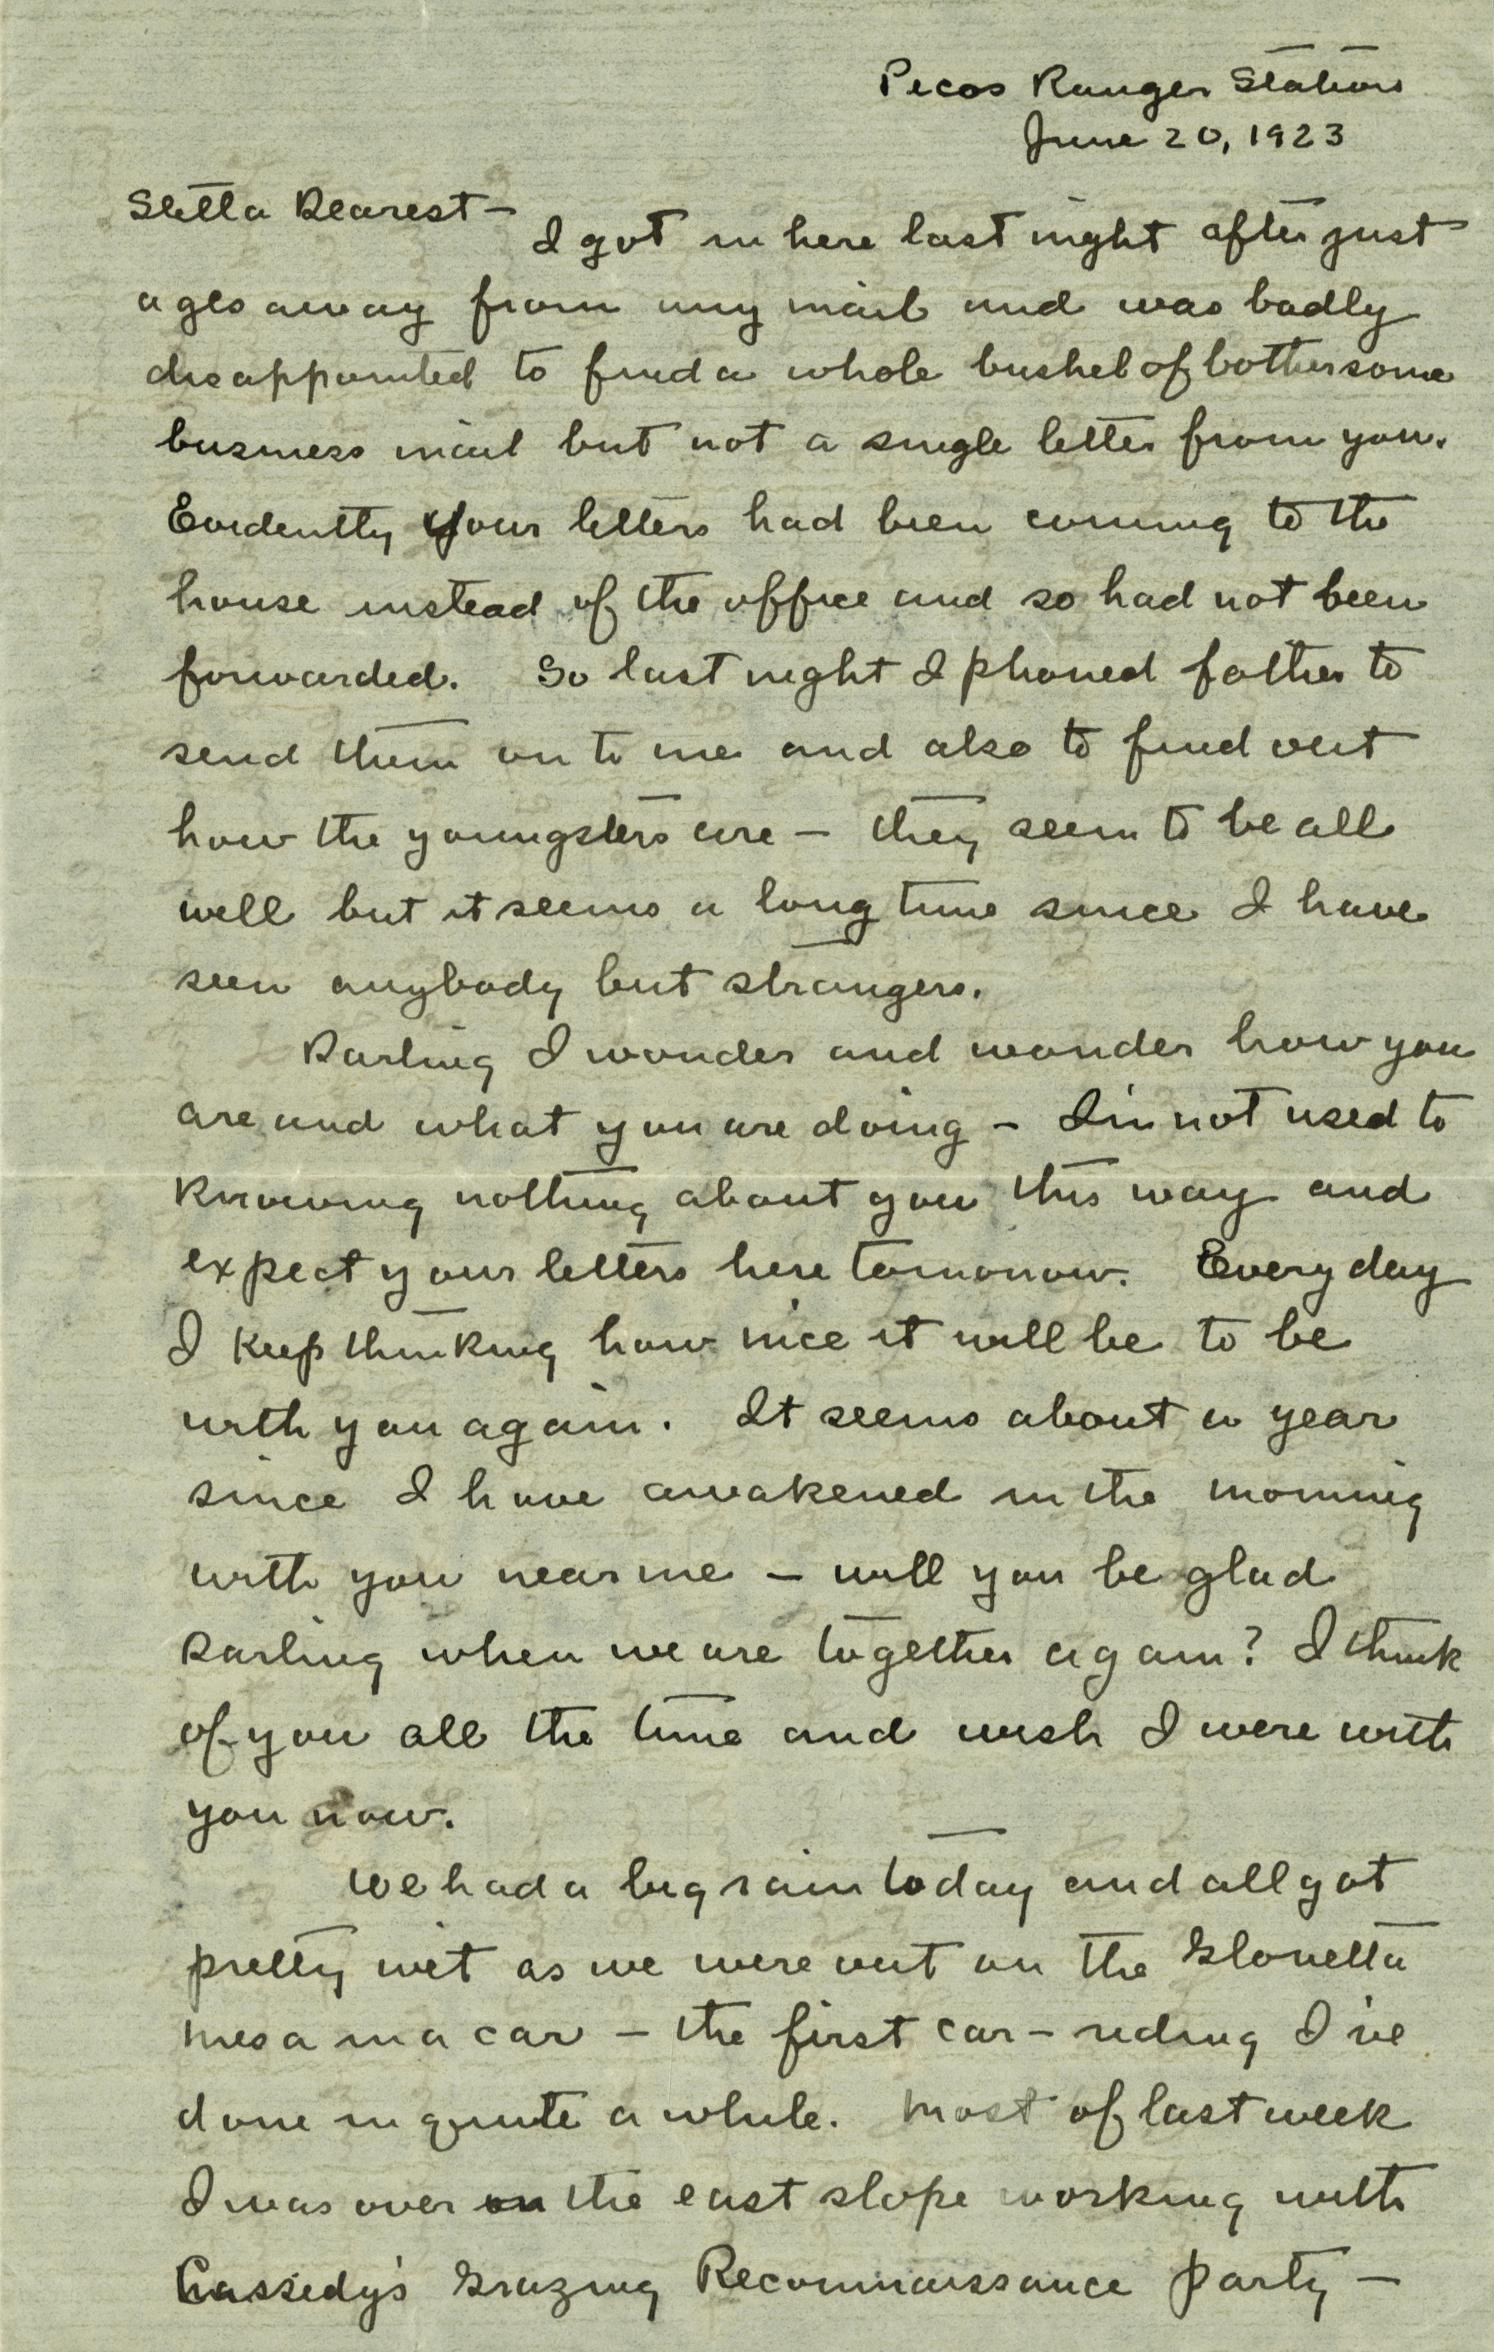 Pecos Ranger Station
June 20, 1923
Stella Dearest —
I got in here last night after just
ages away from any mail and was badly
disappointed to find a whole bushel of bothersome
business mail but not a single letter from you.
Evidently your letters had been coming to the
house instead of the office and so had not been
forwarded. So last night I phoned father to
send them on to me and also to find out
how the youngsters are — they seem to be all
well but it seems a long time since I have
seen anybody but strangers.
Darling I wonder and wonder how you
are and what you are doing — I'm not used to
knowing nothing about you this way and
expect your letters here tomorrow. Every day
I keep thinking how nice it will be to be
with you again. It seems about a year
since I have awakened in the morning
with you near me — will you be glad
Darling when we are together again? I think
of you all the time and wish I were with
you now.
We had a big rain today and all got
pretty wet as we were out on the Glorietta
mesa in a car — the first car-riding I've
done in quite a while. Most of last week
I was over on the east slope working with
Cassedy's Grazing Reconnaissance party —